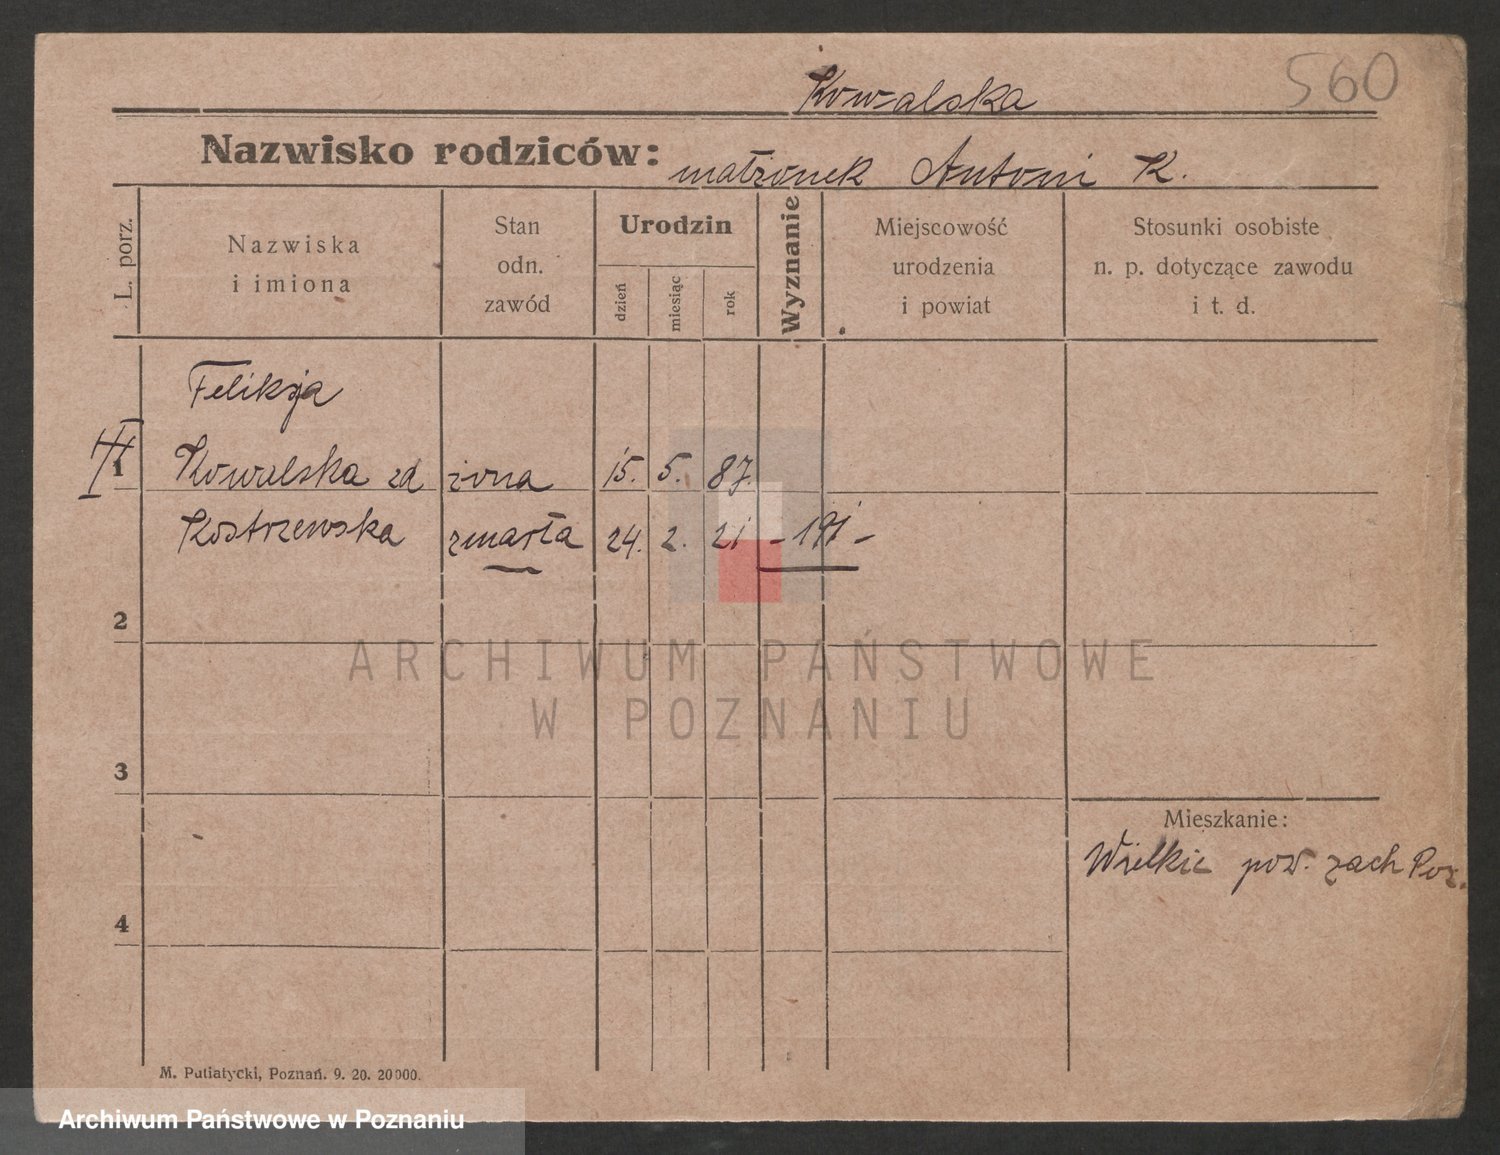 Kowalska
560
Nazwisko rodziców: małżonek Antoni K.
L. porz.
Nazwiska
i imiona
Stan
odn.
zawód
Urodzin
dzień
miesiąc
rok
Wyznanie
Miejscowość
urodzenia
i powiat
Stosunki osobiste
n. p. dotyczące zawodu
i t. d.
Feliksja
1 Kowalska zd żona 15. 5. 87.
Kostrzewska zmarła 24. 2. 21 - 191 -
2
3
4
Mieszkanie:
Wielkie pow. zach Poz.
M. Putiatycki, Poznań. 9. 20. 20000.
ARCHIWUM PAŃSTWOWE
W POZNANIU
Archiwum Państwowe w Poznaniu